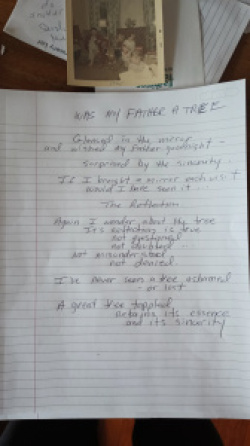 WAS MY FATHER A TREE
Glanced in the mirror
and wished my father goodnight -
Surprised by the sincerity
If I brought a mirror each visit
would I have seen it...
The Reflection
Again I wonder about the tree
Its existing is true
not questioned
not doubted
not misunderstood
not denied.
I've never seen a tree ashamed
- or lost
A great tree toppled,
Retains its essence
and its sincerity